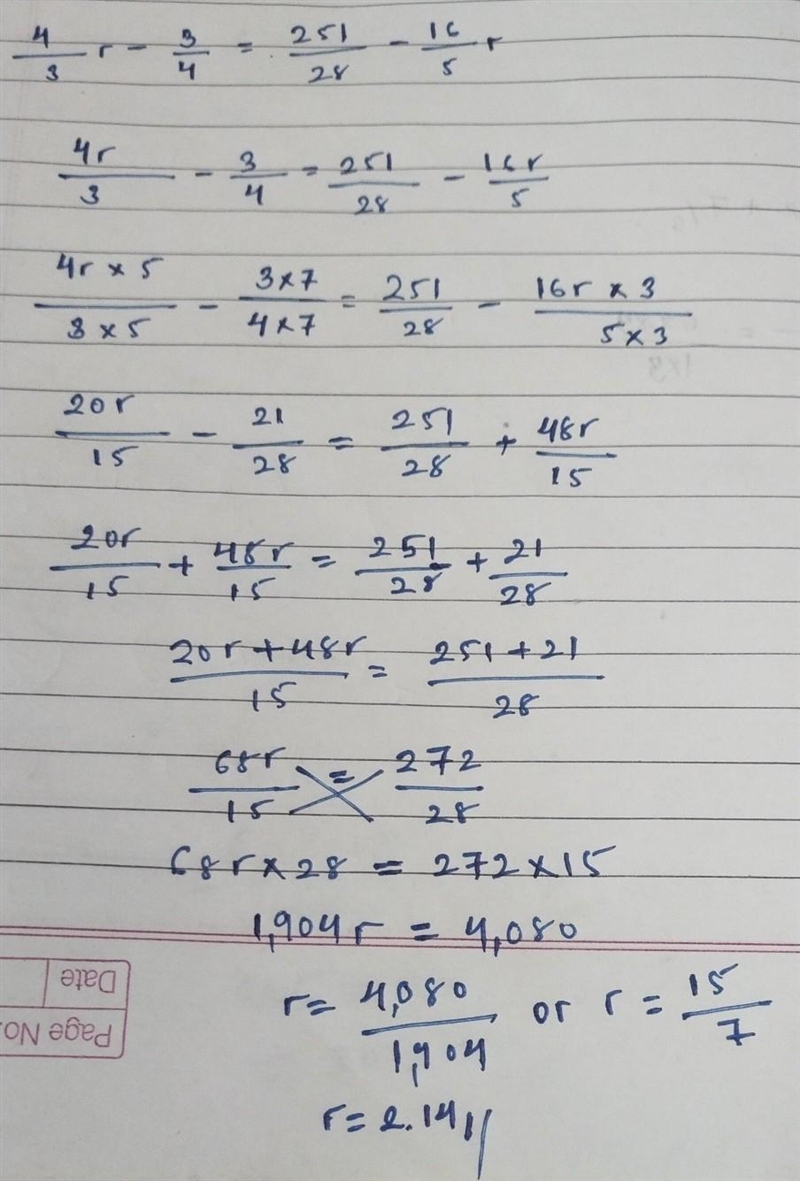 4/3 r - 3/4 = 251/28 - 16/5 r
4r/3 - 3/4 = 251/28 - 16r/5
4r × 5/3 × 5 - 3×7/4×7 = 251/28 - 16r × 3/5 × 3
20r/15 - 21/28 = 251/28 + 48r/15
20r/15 + 48r/15 = 251/28 + 21/28
20r+48r/15 = 251+21/28
68r/15 = 272/28
68r×28 = 272×15
1,904r = 4,080
r= 4,080/1,904 or r = 15/7
r=2.14//
Page No.
Date